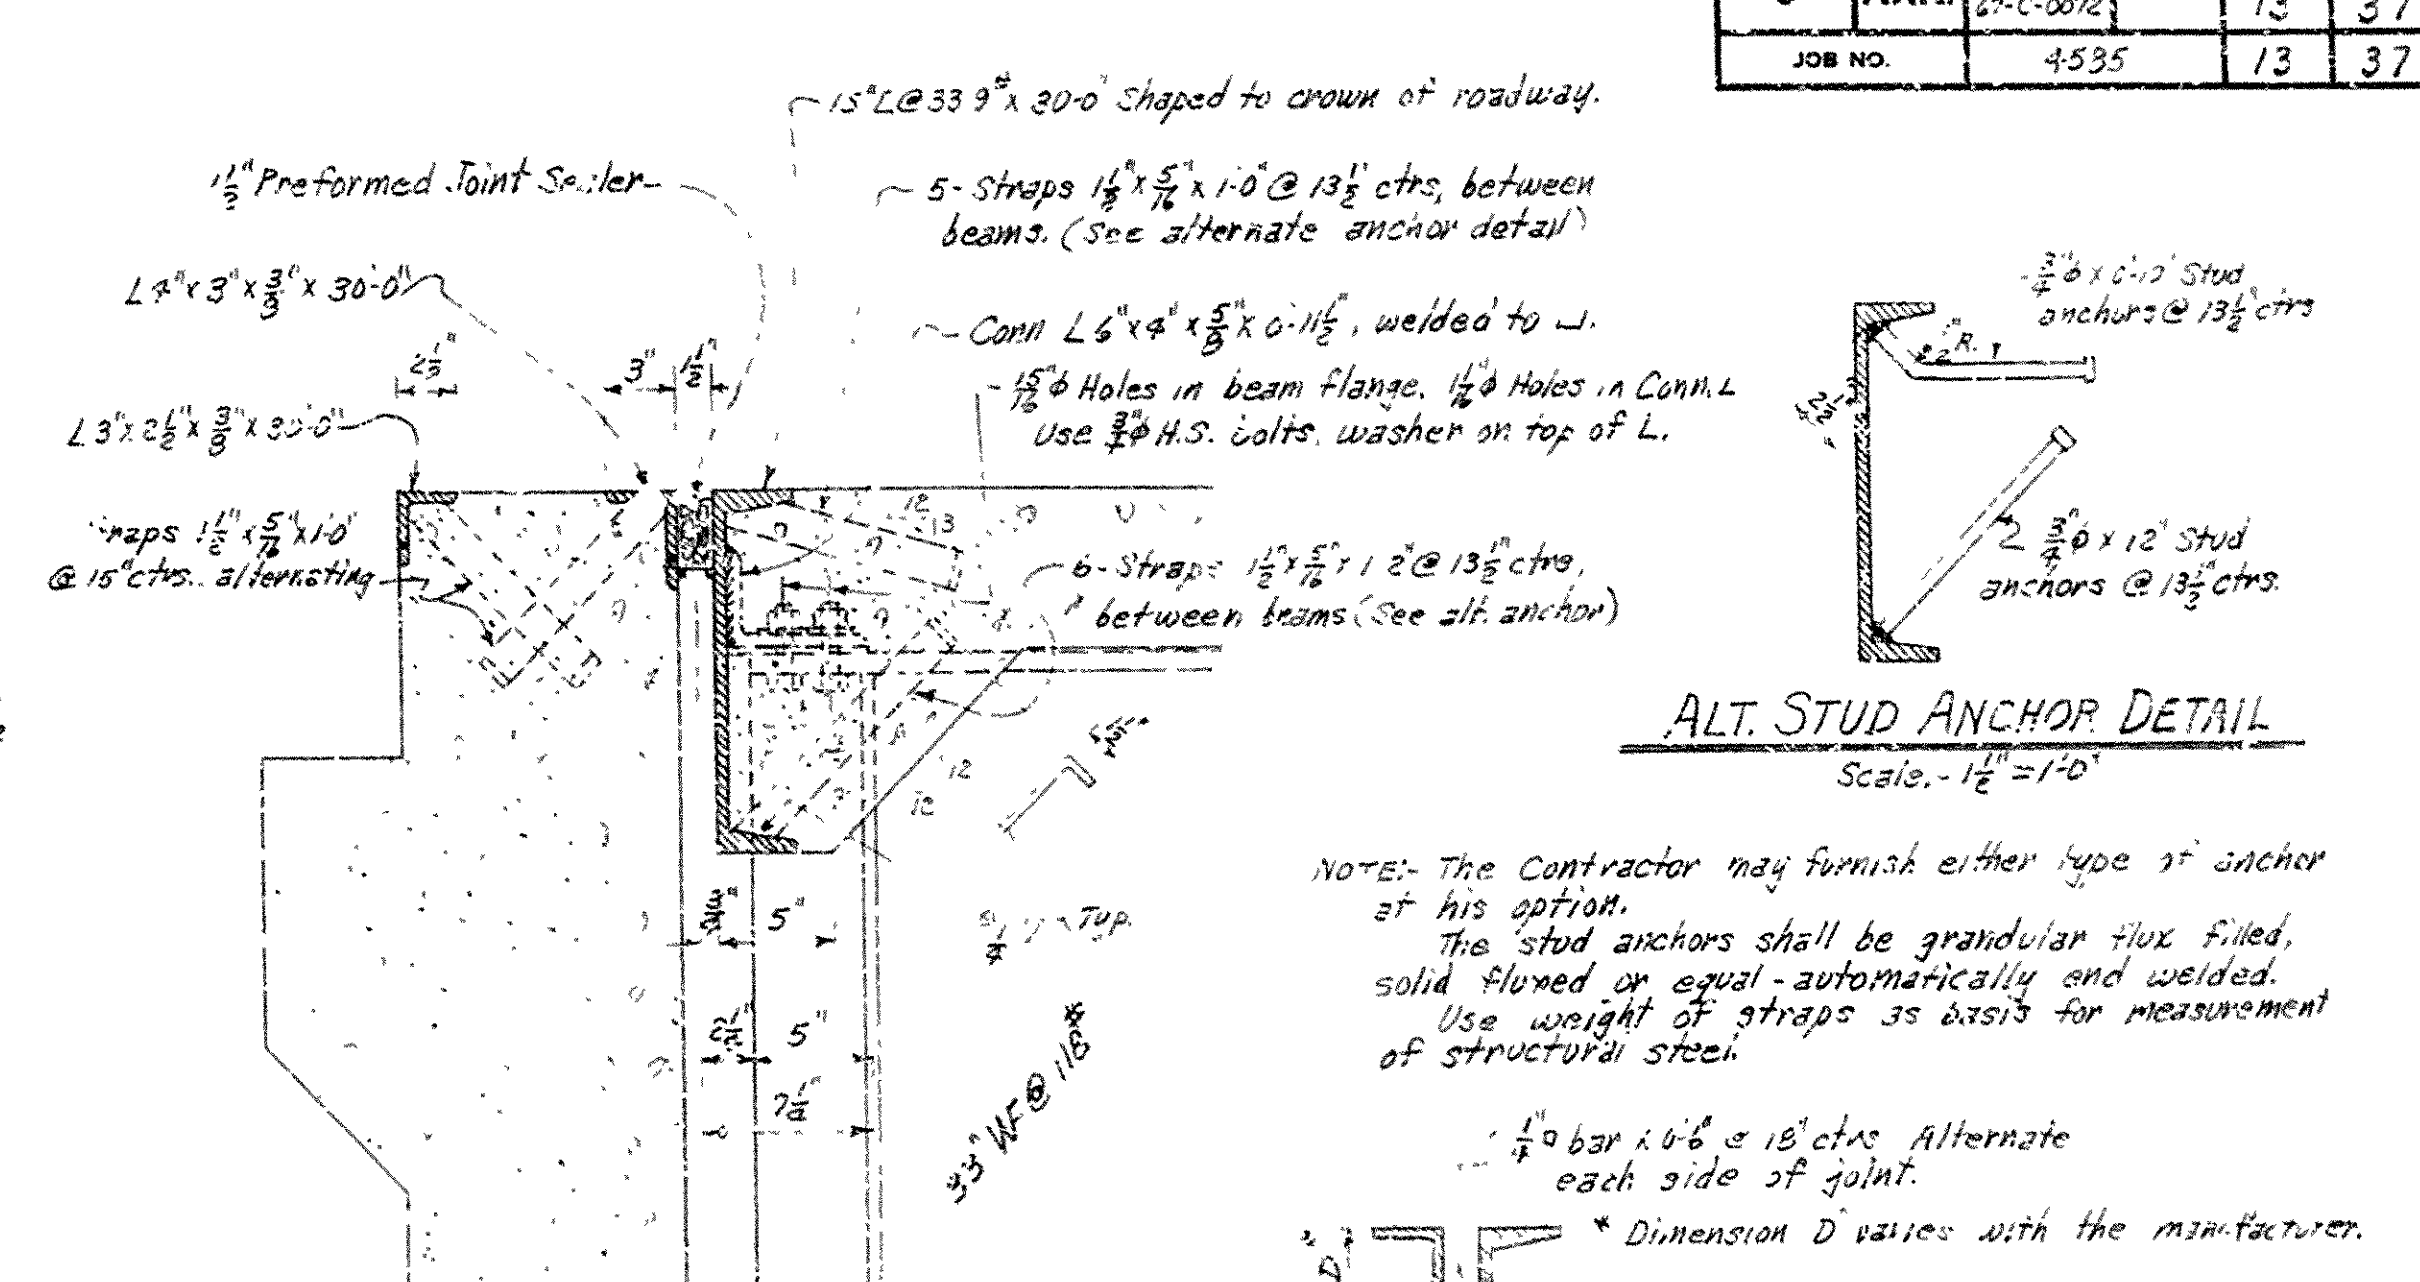 67-C-0072 13 37
JOB NO. 4-535 13 37
15" [ @ 33.9# x 30'-0" Shaped to crown of roadway.
1 1/2" Preformed Joint Sealer
5- Straps 1 1/2" x 5/16" x 1'-0" @ 13 1/2" ctrs, between
beams. (See alternate anchor detail)
L 4" x 3" x 3/8" x 30'-0"
Conn L 6" x 4" x 5/8" x 0'-11 1/2", welded to ⊔.
2 1/2"
3"
1 1/2"
15/16" φ Holes in beam flange. 1 1/16" φ Holes in Conn. L
Use 3/4" φ H.S. bolts, washer on top of L.
L 3" x 2 1/2" x 3/8" x 30'-0"
Straps 1 1/2" x 5/16" x 1'-0"
@ 15" ctrs. alternating
12
13
6- Straps 1 1/2" x 5/16" x 1'-2" @ 13 1/2" ctrs,
between beams (See alt. anchor)
12
12
5"
Typ.
2 1/2"
5"
7 1/2"
33" WF @ 118#
3/4" φ x 0'-12" Stud
anchors @ 13 1/2" ctrs
R.
3/4" φ x 12" Stud
anchors @ 13 1/2" ctrs.
ALT. STUD ANCHOR DETAIL
Scale.- 1 1/2" = 1'-0"
NOTE:- The Contractor may furnish either type of anchor
at his option.
The stud anchors shall be grandular flux filled,
solid fluxed or equal - automatically end welded.
Use weight of straps as basis for measurement
of structural steel.
1/4" □ bar x 0'-6" @ 18" ctrs Alternate
each side of joint.
* Dimension D varies with the manufacturer.
D